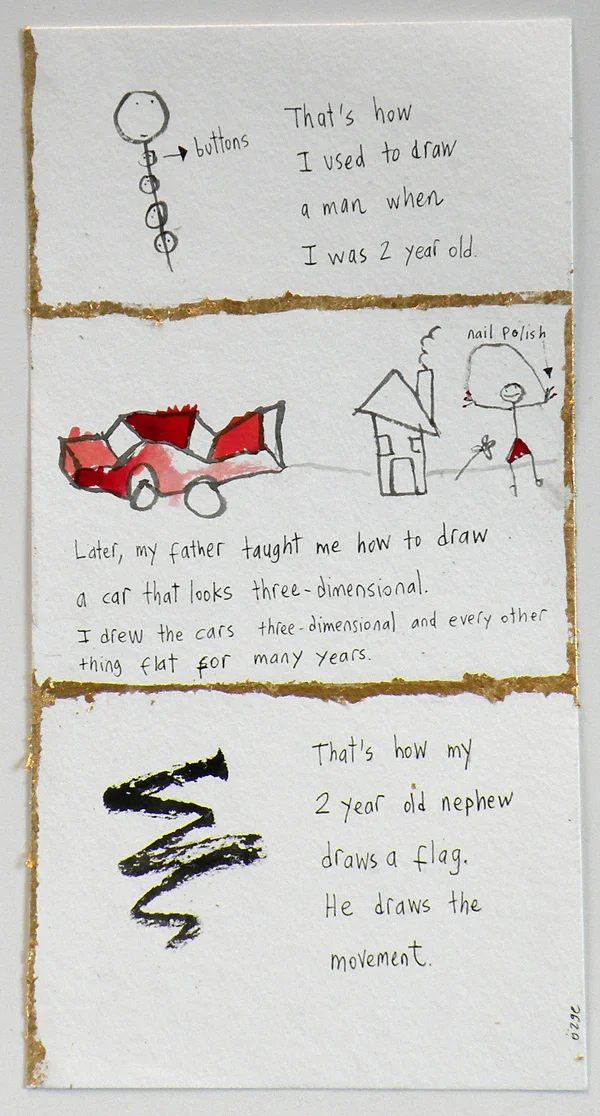 buttons
That's how
I used to draw
a man when
I was 2 year old.
nail polish
Later, my father taught me how to draw
a car that looks three-dimensional.
I drew the cars three-dimensional and every other
thing flat for many years.
That's how my
2 year old nephew
draws a flag.
He draws the
movement.
özge